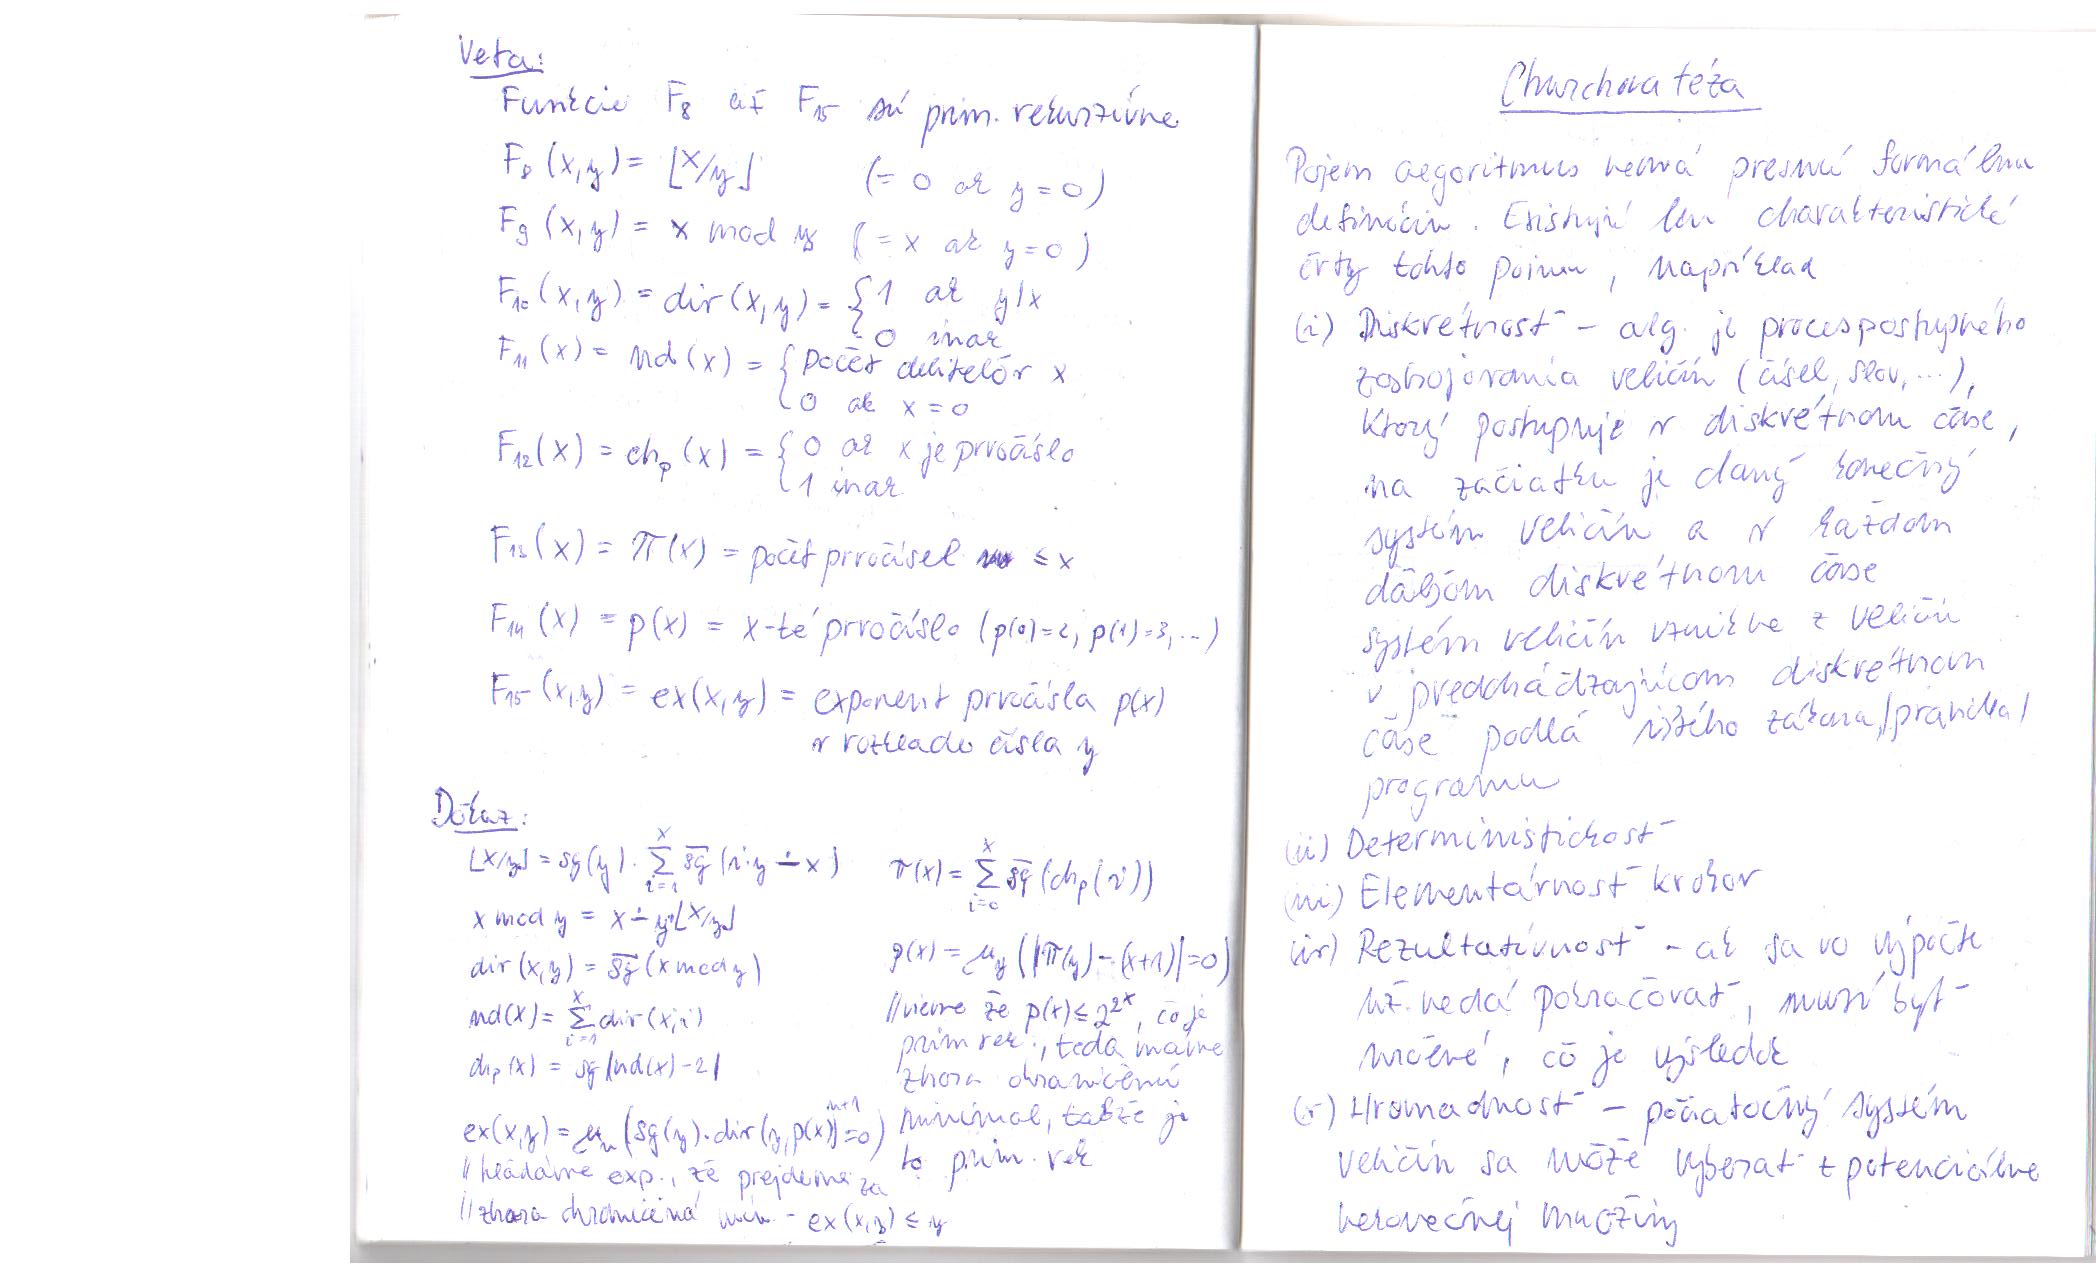 Veta:
Funkcie F₈ až F₁₅ sú prim. rekurzívne
F₈(x,y) = ⌊x/y⌋ (= 0 ak y = 0)
F₉(x,y) = x mod y (= x ak y = 0)
F₁₀(x,y) = div(x,y) = { 1 ak y|x
0 inak
F₁₁(x) = nd(x) = { počet deliteľov x
0 ak x = 0
F₁₂(x) = chₚ(x) = { 0 ak x je prvočíslo
1 inak
F₁₃(x) = π(x) = počet prvočísel ≤ x
F₁₄(x) = p(x) = x-té prvočíslo (p(0)=2, p(1)=3, ...)
F₁₅(x,y) = ex(x,y) = exponent prvočísla p(x)
v rozklade čísla y
Dôkaz:
⌊x/y⌋ = sg(y) · ∑_{i=1}^{x} s̅g̅(i·y ∸ x)
x mod y = x ∸ y·⌊x/y⌋
div(x,y) = s̅g̅(x mod y)
nd(x) = ∑_{i=1}^{x} div(x,i)
chₚ(x) = sg|nd(x) - 2|
ex(x,y) = μₙ(sg(y)·div(y,p(x)ⁿ⁺¹)=0)
// hľadáme exp., že prejdeme za
// zhora ohraničená min - ex(x,y) ≤ y
π(x) = ∑_{i=0}^{x} s̅g̅(chₚ(i))
p(x) = μ_y(|π(y) - (x+1)| = 0)
// vieme že p(x) ≤ 2^{2^x}, čo je
prim rek., teda máme
zhora ohraničenú
minimal, takže je
to prim. rek
Churchova téza
Pojem algoritmus nemá presnú formálnu
definíciu. Existujú len charakteristické
črty tohto pojmu, napríklad
(i) Diskrétnosť - alg. je proces postupného
zostrojovania veličín (čísel, slov, ...),
ktorý postupuje v diskrétnom čase,
na začiatku je daný konečný
systém veličín a v každom
ďalšom diskrétnom čase
systém veličín vznikne z veličín
v predchádzajúcom diskrétnom
čase podľa istého zákona/pravidla/
programu
(ii) Deterministickosť
(iii) Elementárnosť krokov
(iv) Rezultatívnosť - ak sa vo výpočte
už nedá pokračovať, musí byť
určené, čo je výsledok
(v) Hromadnosť - počiatočný systém
veličín sa môže vyberať z potenciálne
nekonečnej množiny